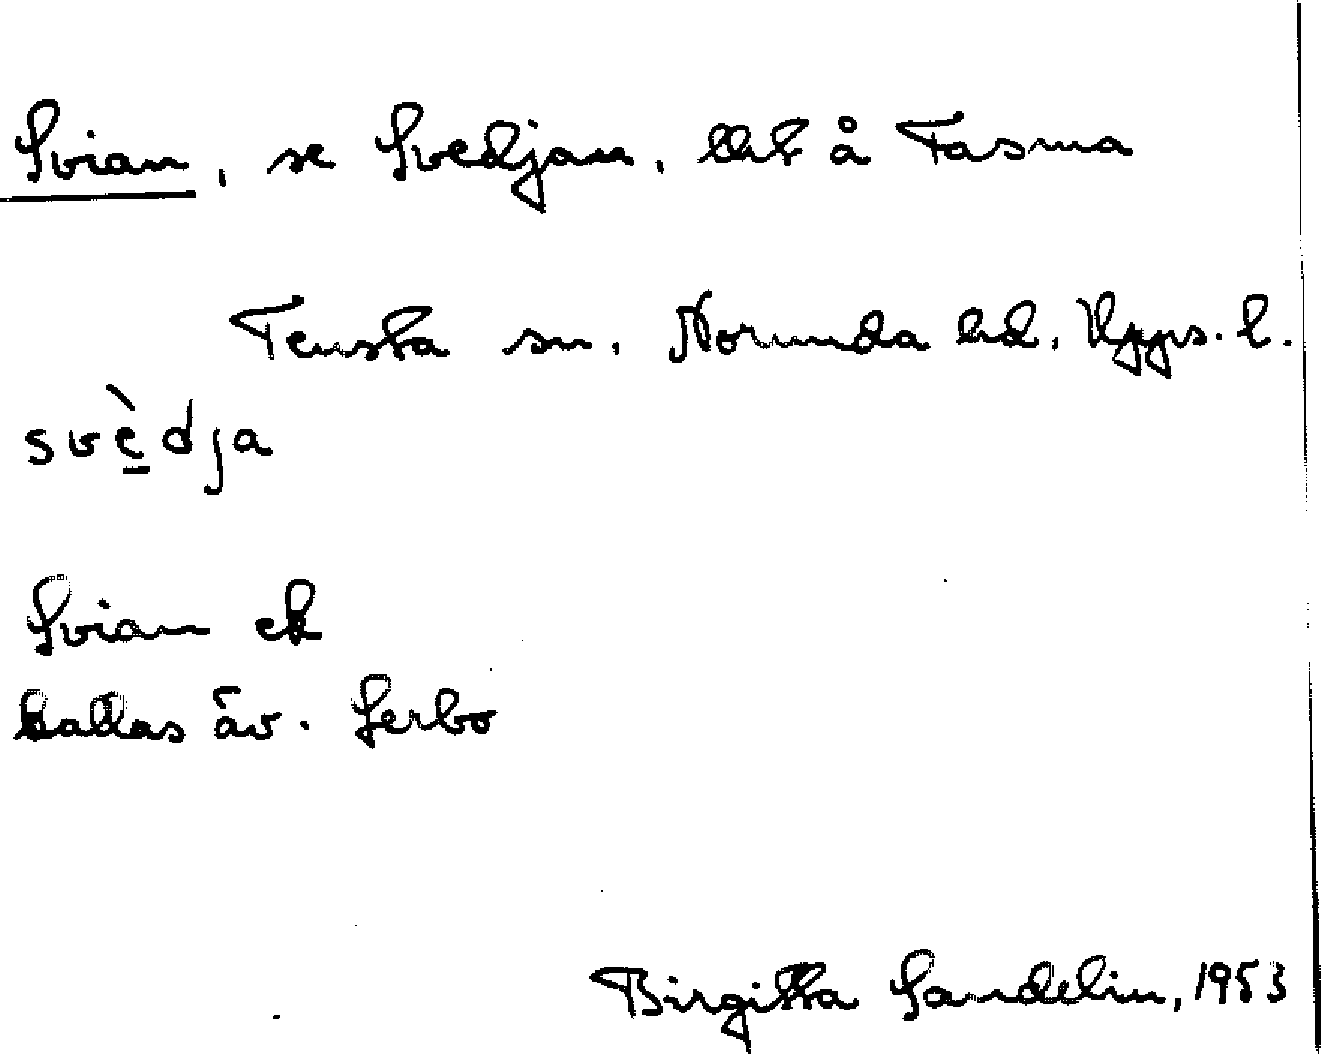 Svian, se Svedjan, lht å Fasma
Tensta sn. Norunda hd. Upps. l.
svèdja
Svian ek
kallas äv. Serbo
Birgitta Sandelin, 1953